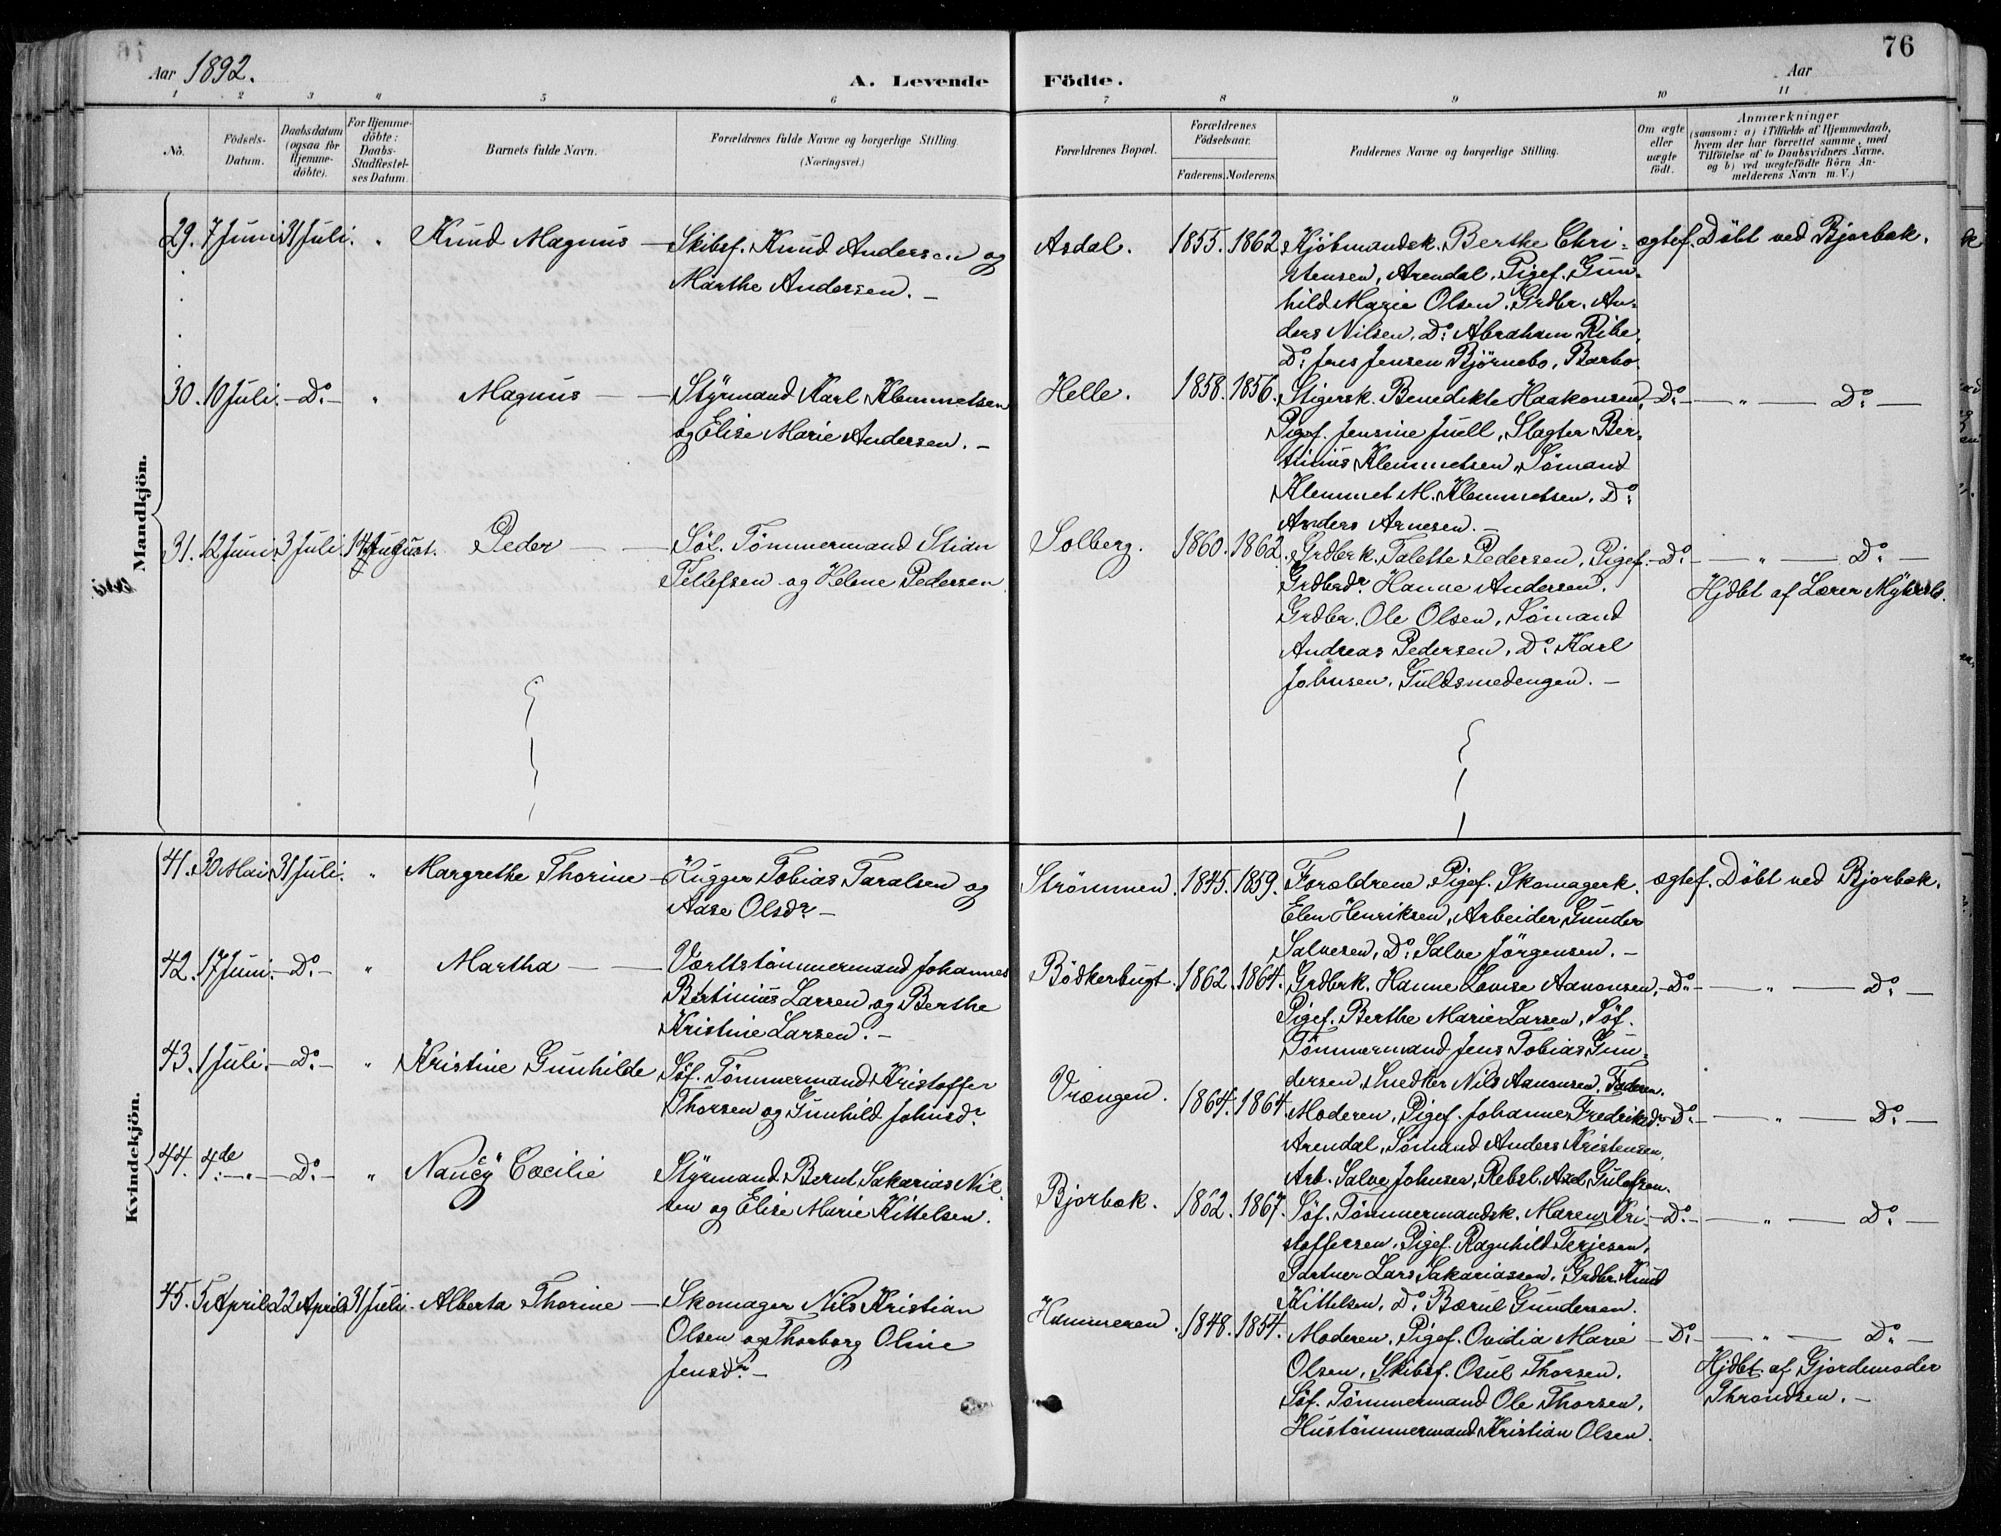 76
Aar 1892.
A. Levende Födte.
Aar
1 2 3 4 5 6 7 8 9 10 11
No.
Födsels-
Datum.
Daabsdatum
(ogsaa for
Hjemme-
döbte).
For Hjemme-
döbte:
Daabs-
Stadfæstel-
ses Datum.
Barnets fulde Navn.
Forældrenes fulde Navne og borgerlige Stilling.
(Næringsvei.)
Forældrenes Bopæl.
Forældrenes
Födselsaar.
Faderens. Moderens.
Faddernes Navne og borgerlige Stilling.
Om ægte
eller
uægte
födt.
Anmærkninger
(saasom: a) i Tilfælde af Hjemmedaab,
hvem der har forrettet samme, med
Tilföielse af to Daabsvidners Navne,
og b) ved uægtefödte Börn An-
melderens Navn m. V.)
Mandkjön.
29. 7 Juni 31 Juli. " Knud Magnus —
Skibsf. Knud Andersen og
Marthe Andersen. —
Asdal. 1855. 1862.
Kjøbmandsk. Berthe Chri-
stensen, Arendal. Pigef. Gun-
hild Marie Olsen. Grdbr. An-
ders Nilsen, Do: Abraham Ribe
Do: Jens Jensen Bjørnebo, Barbo
ægtef. Döbt ved Bjorbæk.
30. 10 Juli. — Do: — " Magnus —
Styrmand Karl Klemmetsen
og Elise Marie Andersen. —
Helle. 1858. 1856.
Stigersk. Benedikte Haakonsen,
Pigef. Jensine Juell, Slagter Ber-
tinius Klemmetsen, Sømand
Klemmet M. Klemmetsen, Do:
Anders Arnesen. —
— Do: — " — Do: —
31. 12 Juni. 3 Juli. 14 August. Peder —
Söf. Tömmermand Stian
Tellefsen og Helene Pedersen
Solberg. 1860. 1862.
Grdbrk. Talette Pedersen, Pigef.
Grdbrdr. Hanne Andersen.
Grdbr. Ole Olsen, Sømand
Andreas Pedersen, Do: Karl
Johnsen, Guldsmedengen. —
— Do: — " — Do: —
Hjdbt af Lærer
Kvindekjön.
41. 30 Mai 31 Juli. " Margrethe Thorine —
Hugger Tobias Taralsen og
Aase Olsdr. —
Strømmen. 1845. 1859.
Foræld­rene, Pigef. Skomagerk.
Elen Henriksen, Arbeider Gunder
Salvesen, Do: Salve Jörgensen. —
ægtef. Döbt ved Bjorbæk.
42. 17 Juni. — Do: — " Martha —
Værftstømmermand Johannes
Bertinius Larsen og Berthe
Kristine Larsen. —
Bödkerbugt. 1862. 1864.
Grdbrk. Hanne Lovise Aanonsen,
Pigef. Berthe Marie Larsen, Söf.
Tømmermand Jens Tobias Gun-
dersen, Snedker Nils Aanonsen, Faderen.
— Do: — " — Do: —
43. 1 Juli. — Do: — " Kristine Gunhilde
Söf. Tömmermand Kristoffer
Thorsen og Gunhild Johnsdr.
Vrængen. 1864. 1864
Moderen, Pigef. Johanne Fredriksdr.
Arendal, Sømand Anders Kristensen,
Arb. Salve Johnsen, Rebsl. Axel Gulofsen.
— Do: — " — Do: —
44. 4de — " — Do: — " Nancy Cæcilie
Styrmand Bernt Sakarias Nil-
sen og Elise Marie Kittelsen.
Bjorbæk. 1862. 1867.
Söf. Tømmermandsk. Maren Kri-
stoffersen, Pigef. Ragnhild Terjesen,
Gartner Lars Sakariassen. Grdbr. Knud
Kittelsen, Do: Bærul Gundersen.
— Do: — " — Do: —
45. 5 April 22 April 31 Juli. Alberta Thorine —
Skomager Nils Kristian
Olsen og Thorborg Oline
Jensdr. —
Hammeren. 1848. 1854.
Moderen, Pigef. Ovidia Marie
Olsen, Skibsf. Osul Thorsen.
Söf. Tømmermand Ole Thorsen,
Hustømmermand Kristian Olsen.
— Do: — " — Do: —
Hjdbt af Gjordemoder
Throndsen. —